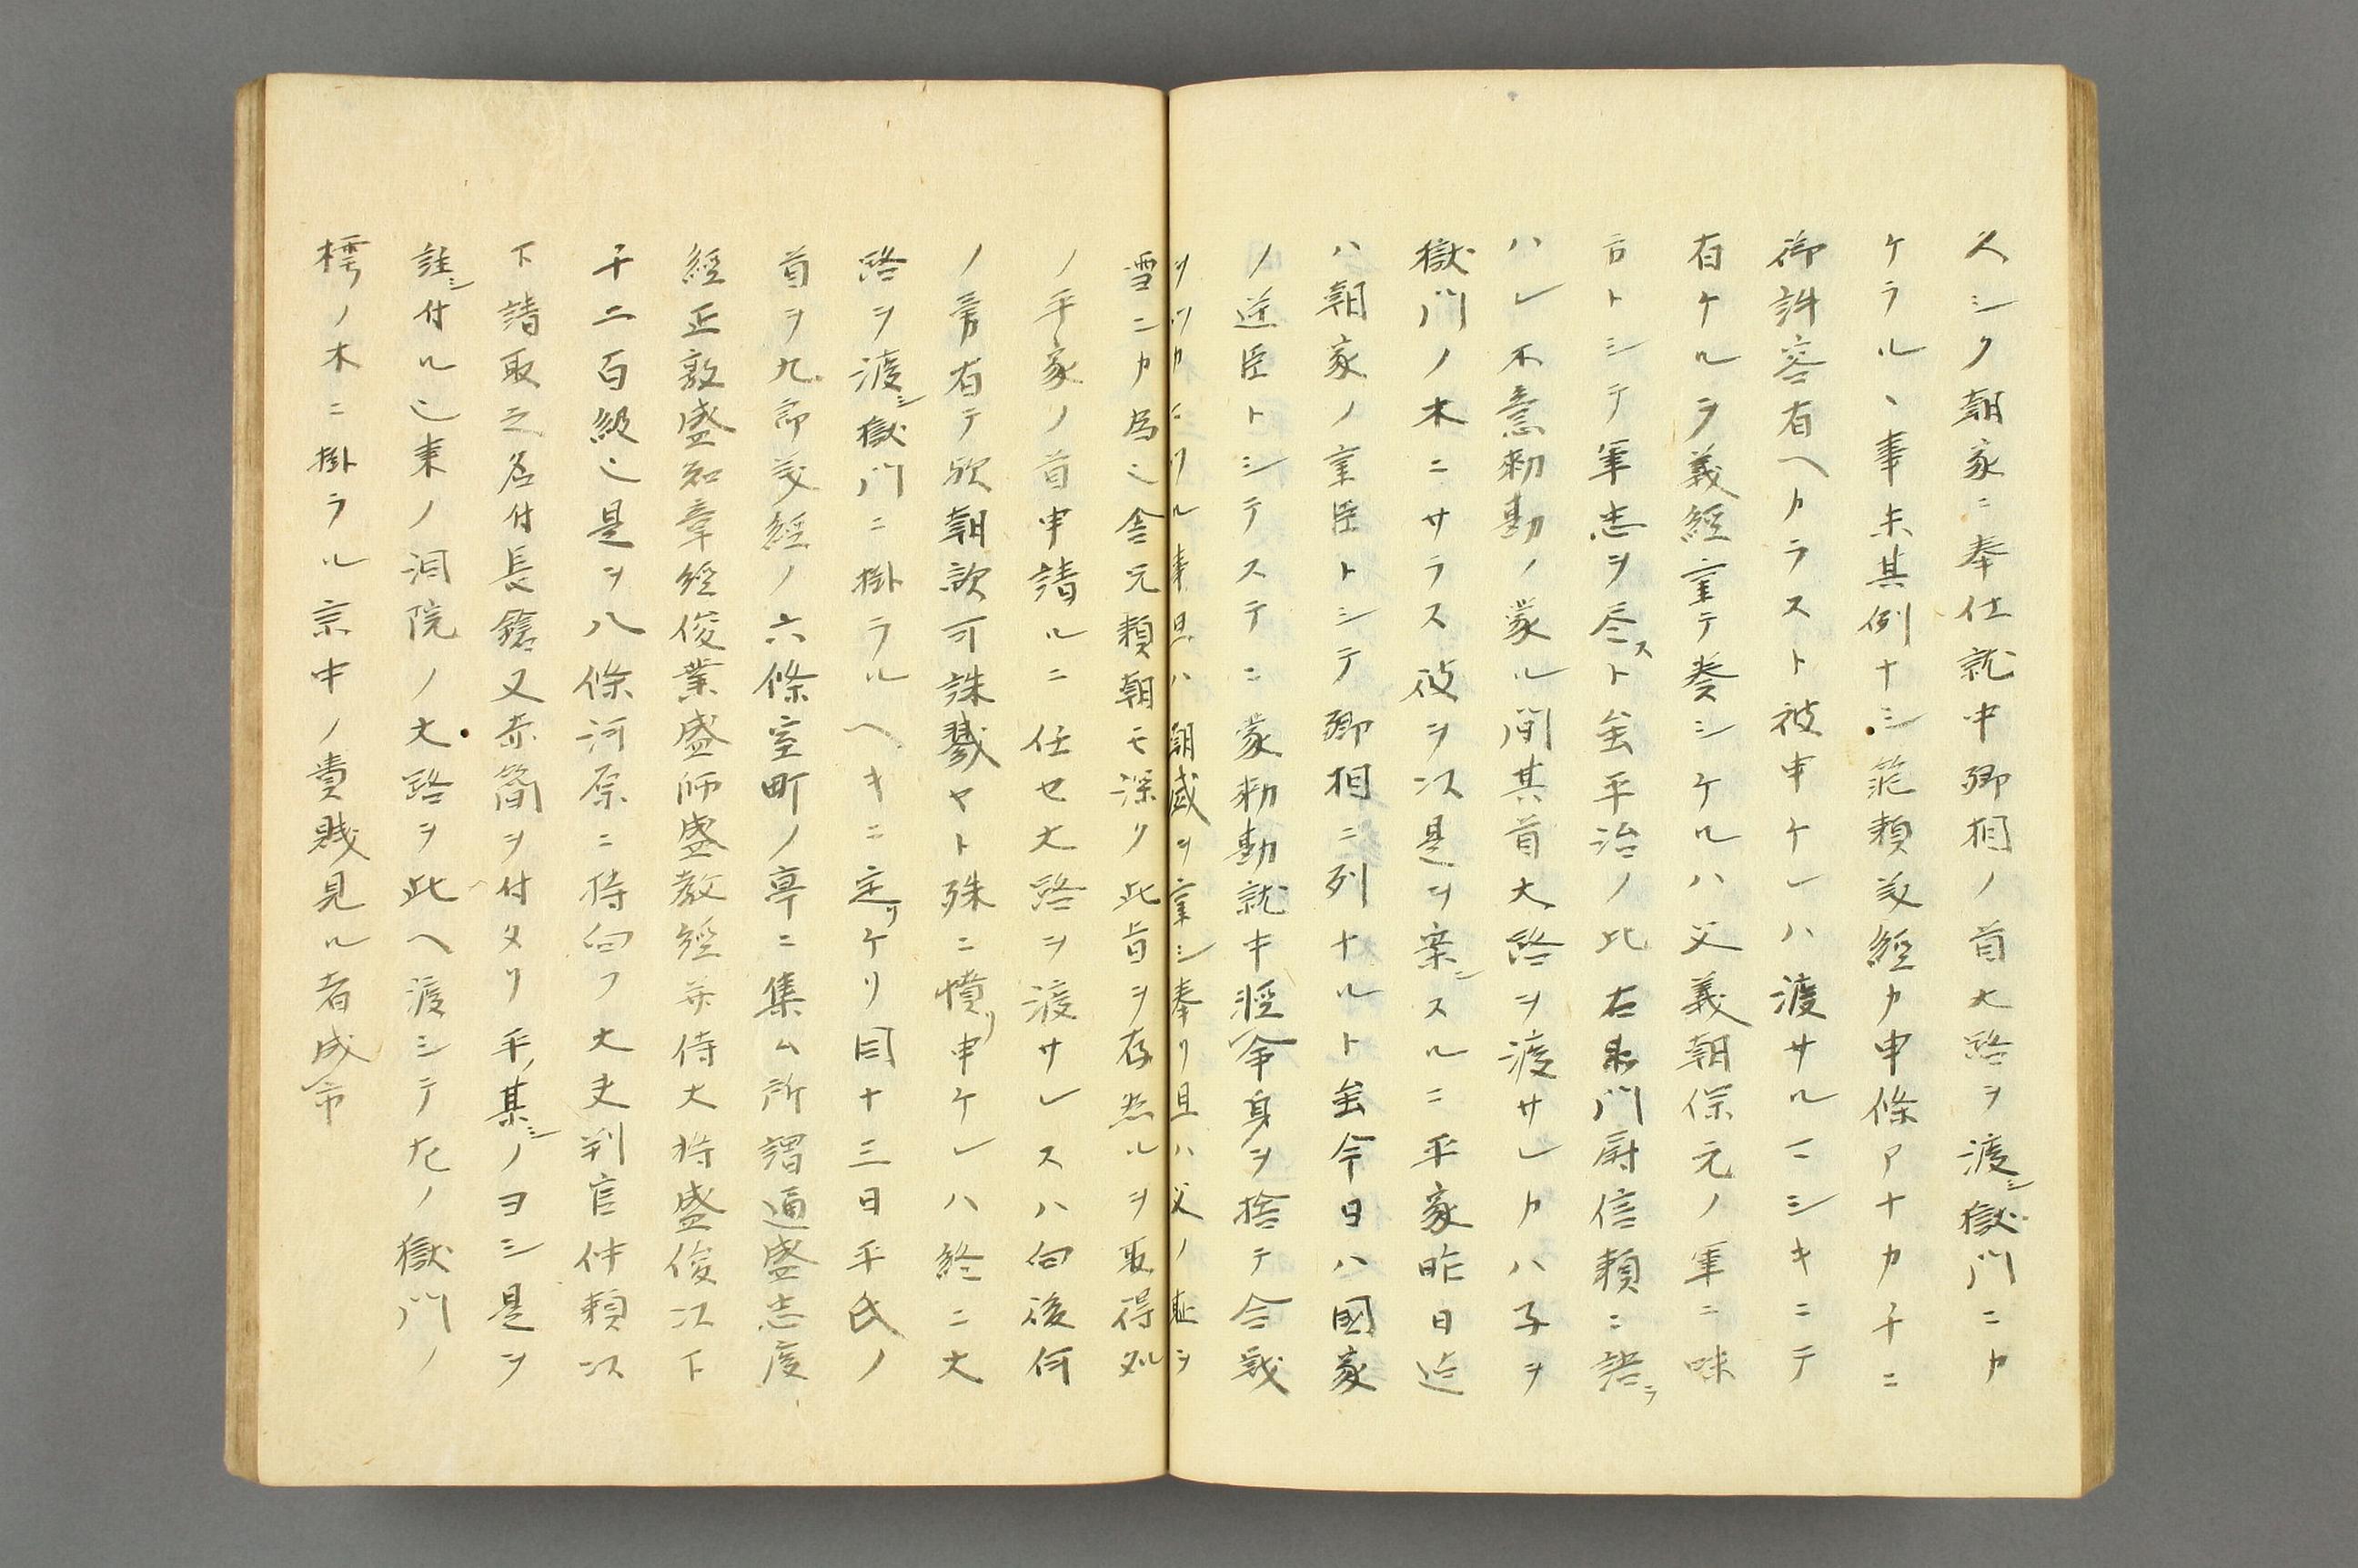 久シク朝家ニ奉仕就中卿相ノ首大路ヲ渡シ獄門ニカ
ケラルヽ事未其例ナシ範頼義經カ申條アナカチニ
御許容有ヘカラスト被申ケレハ渡サルマシキニテ
有ケルヲ義經重テ奏シケルハ父義朝保元ノ軍ニ味
方トシテ軍忠ヲ尽スト雖平治ノ比右衛門尉信頼ニ語ラ
ハレ不意勅勘ノ蒙ル間其首大路ヲ渡サレカハ子ヲ
獄門ノ木ニサラス彼ヲ以是ヲ案シスルニ平家昨日迄
ハ朝家ノ重臣トシテ卿相ニ列ナルト雖今日ハ國家
ノ逆臣トシテステニ蒙勅勘就中軽命身ヲ捨テ合戦
ツツカマツル事且ハ朝威ヲ重シ奉リ且ハ父ノ恥ヲ
雪ニカ為也舎兄頼朝モ深ク此旨ヲ存然ルヲ取得処
ノ平家ノ首申請ルニ任セ大路ヲ渡サレスハ向後何
ノ勇有テ欤朝敵可誅戮ヤト殊ニ憤リ申ケレハ終ニ大
路ヲ渡シ獄門ニ掛ラルヘキニ定リケリ同十三日平氏ノ
首ヲ九郎義經ノ六條室町ノ亭ニ集ム所謂通盛忠度
經正敦盛知章經俊業盛師盛教經并侍大将盛俊以下
千二百級也是ヲ八條河原ニ持向フ大夫判官仲頼以
下請取之名付長鎗又赤簡ヲ付タリ平ノ某シノヨシ是ヲ
註シ付ル也東ノ洞院ノ大路ヲ此ヘ渡シテ左ノ獄門ノ
樗ノ木ニ掛ラル京中ノ貴賤見ル者成市